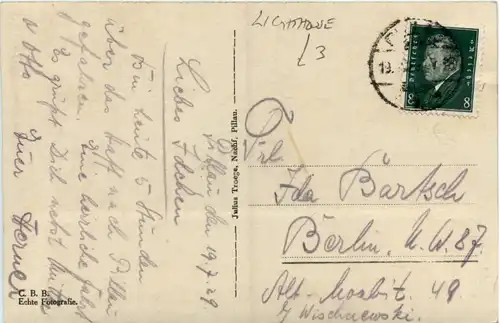 LICHTHOWE
L3
Pillau den 19.7.29.
Liebes Idchen
Bin heute 5 Stunden
über das Haff nach Pillau
gefahren. Eine herrliche Fahrt
Es grüßt Dich nebst Mutter
u Otto
Euer
U. B. B.
Echte Fotografie.
Julius Troege, Nachf. Pillau.
19.
DEUTSCHES REICH
8 8
Frl.
Ida Bartsch
Berlin. N.W. 87.
Alt-Moabit 49.
b/ Wischnewski.